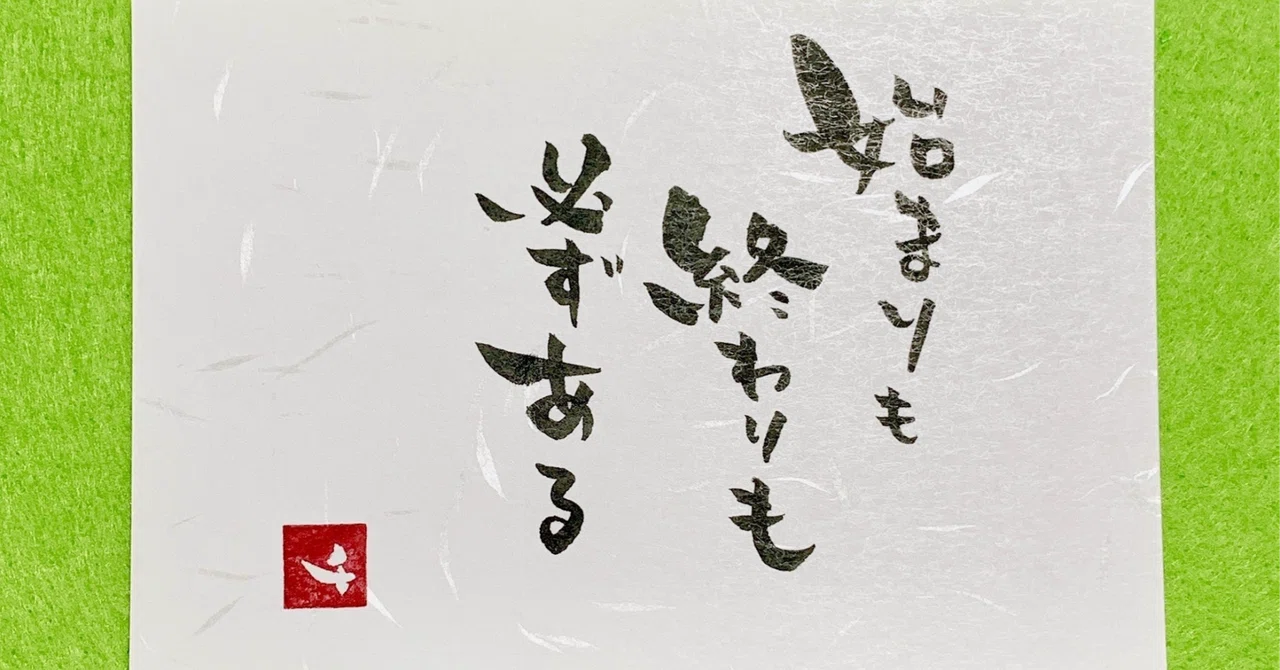 始まりも
終わりも
必ずある